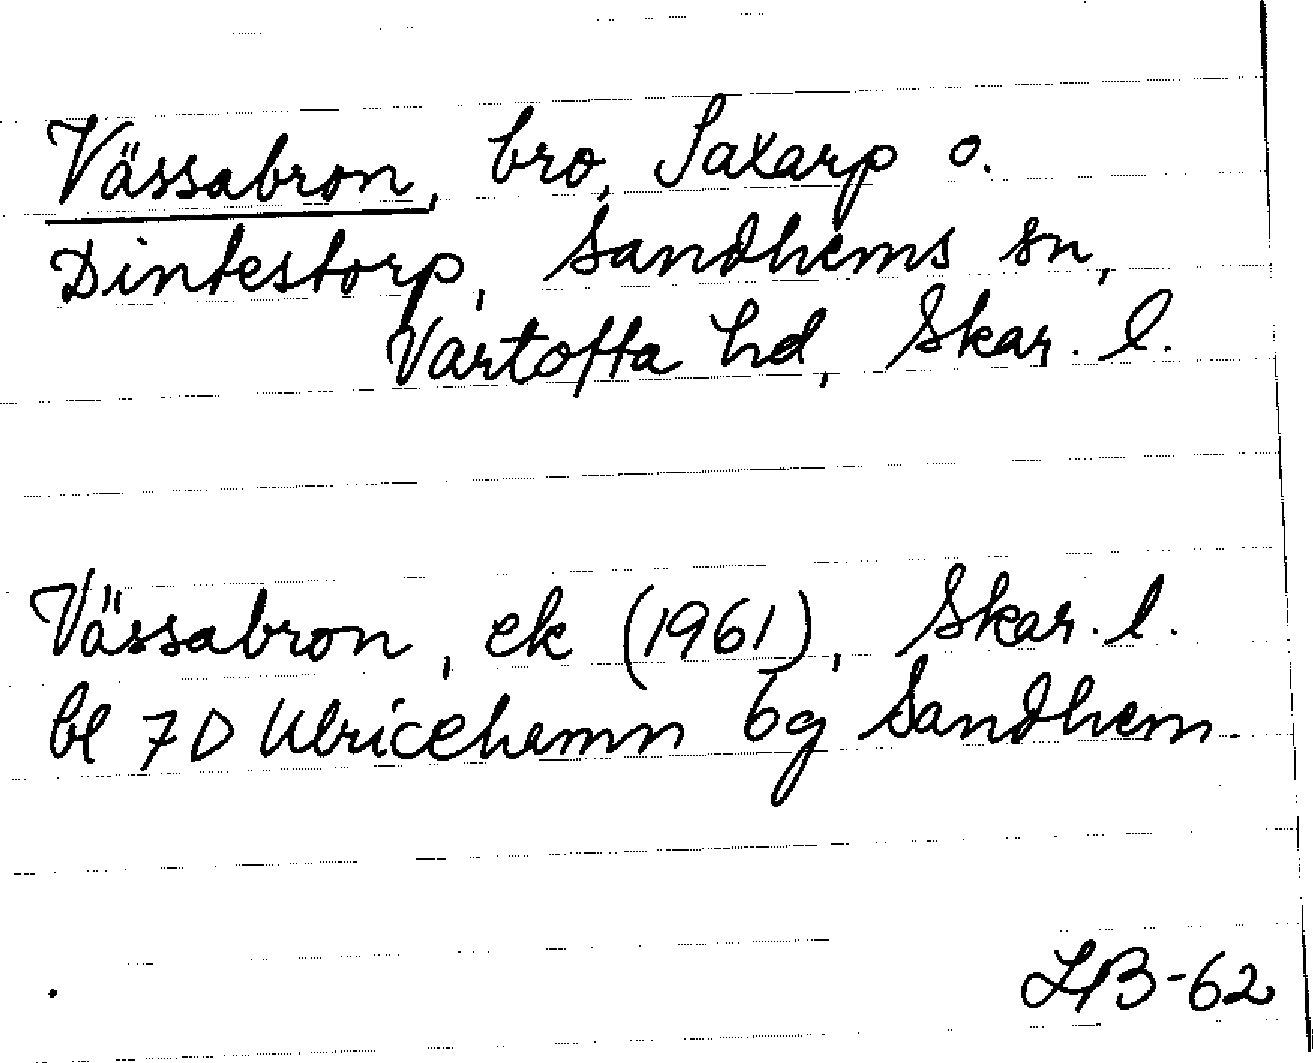 Vässabron, bro, Saxarp o.
Dintestorp, Sandhems sn,
Vartofta hd, Skar. l.
Vässabron, ek (1961), Skar. l.
bl 7D Ulricehamn 6g Sandhem.
LB-62